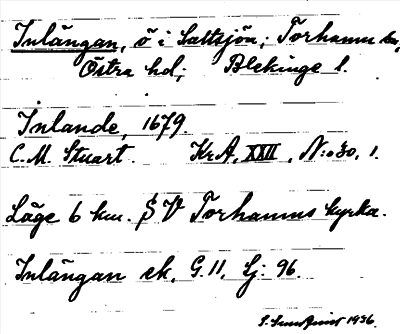 Inlängan, ö i Saltsjön; Torhamn sn,
Östra hd; Blekinge l.
Inlande, 1679.
C.M. Stuart. KrA, XXII, N:o 30, 1.
Läge 6 km. SV Torhamns kyrka.
Inlängan ek, G.11, Lj: 96.
1936.